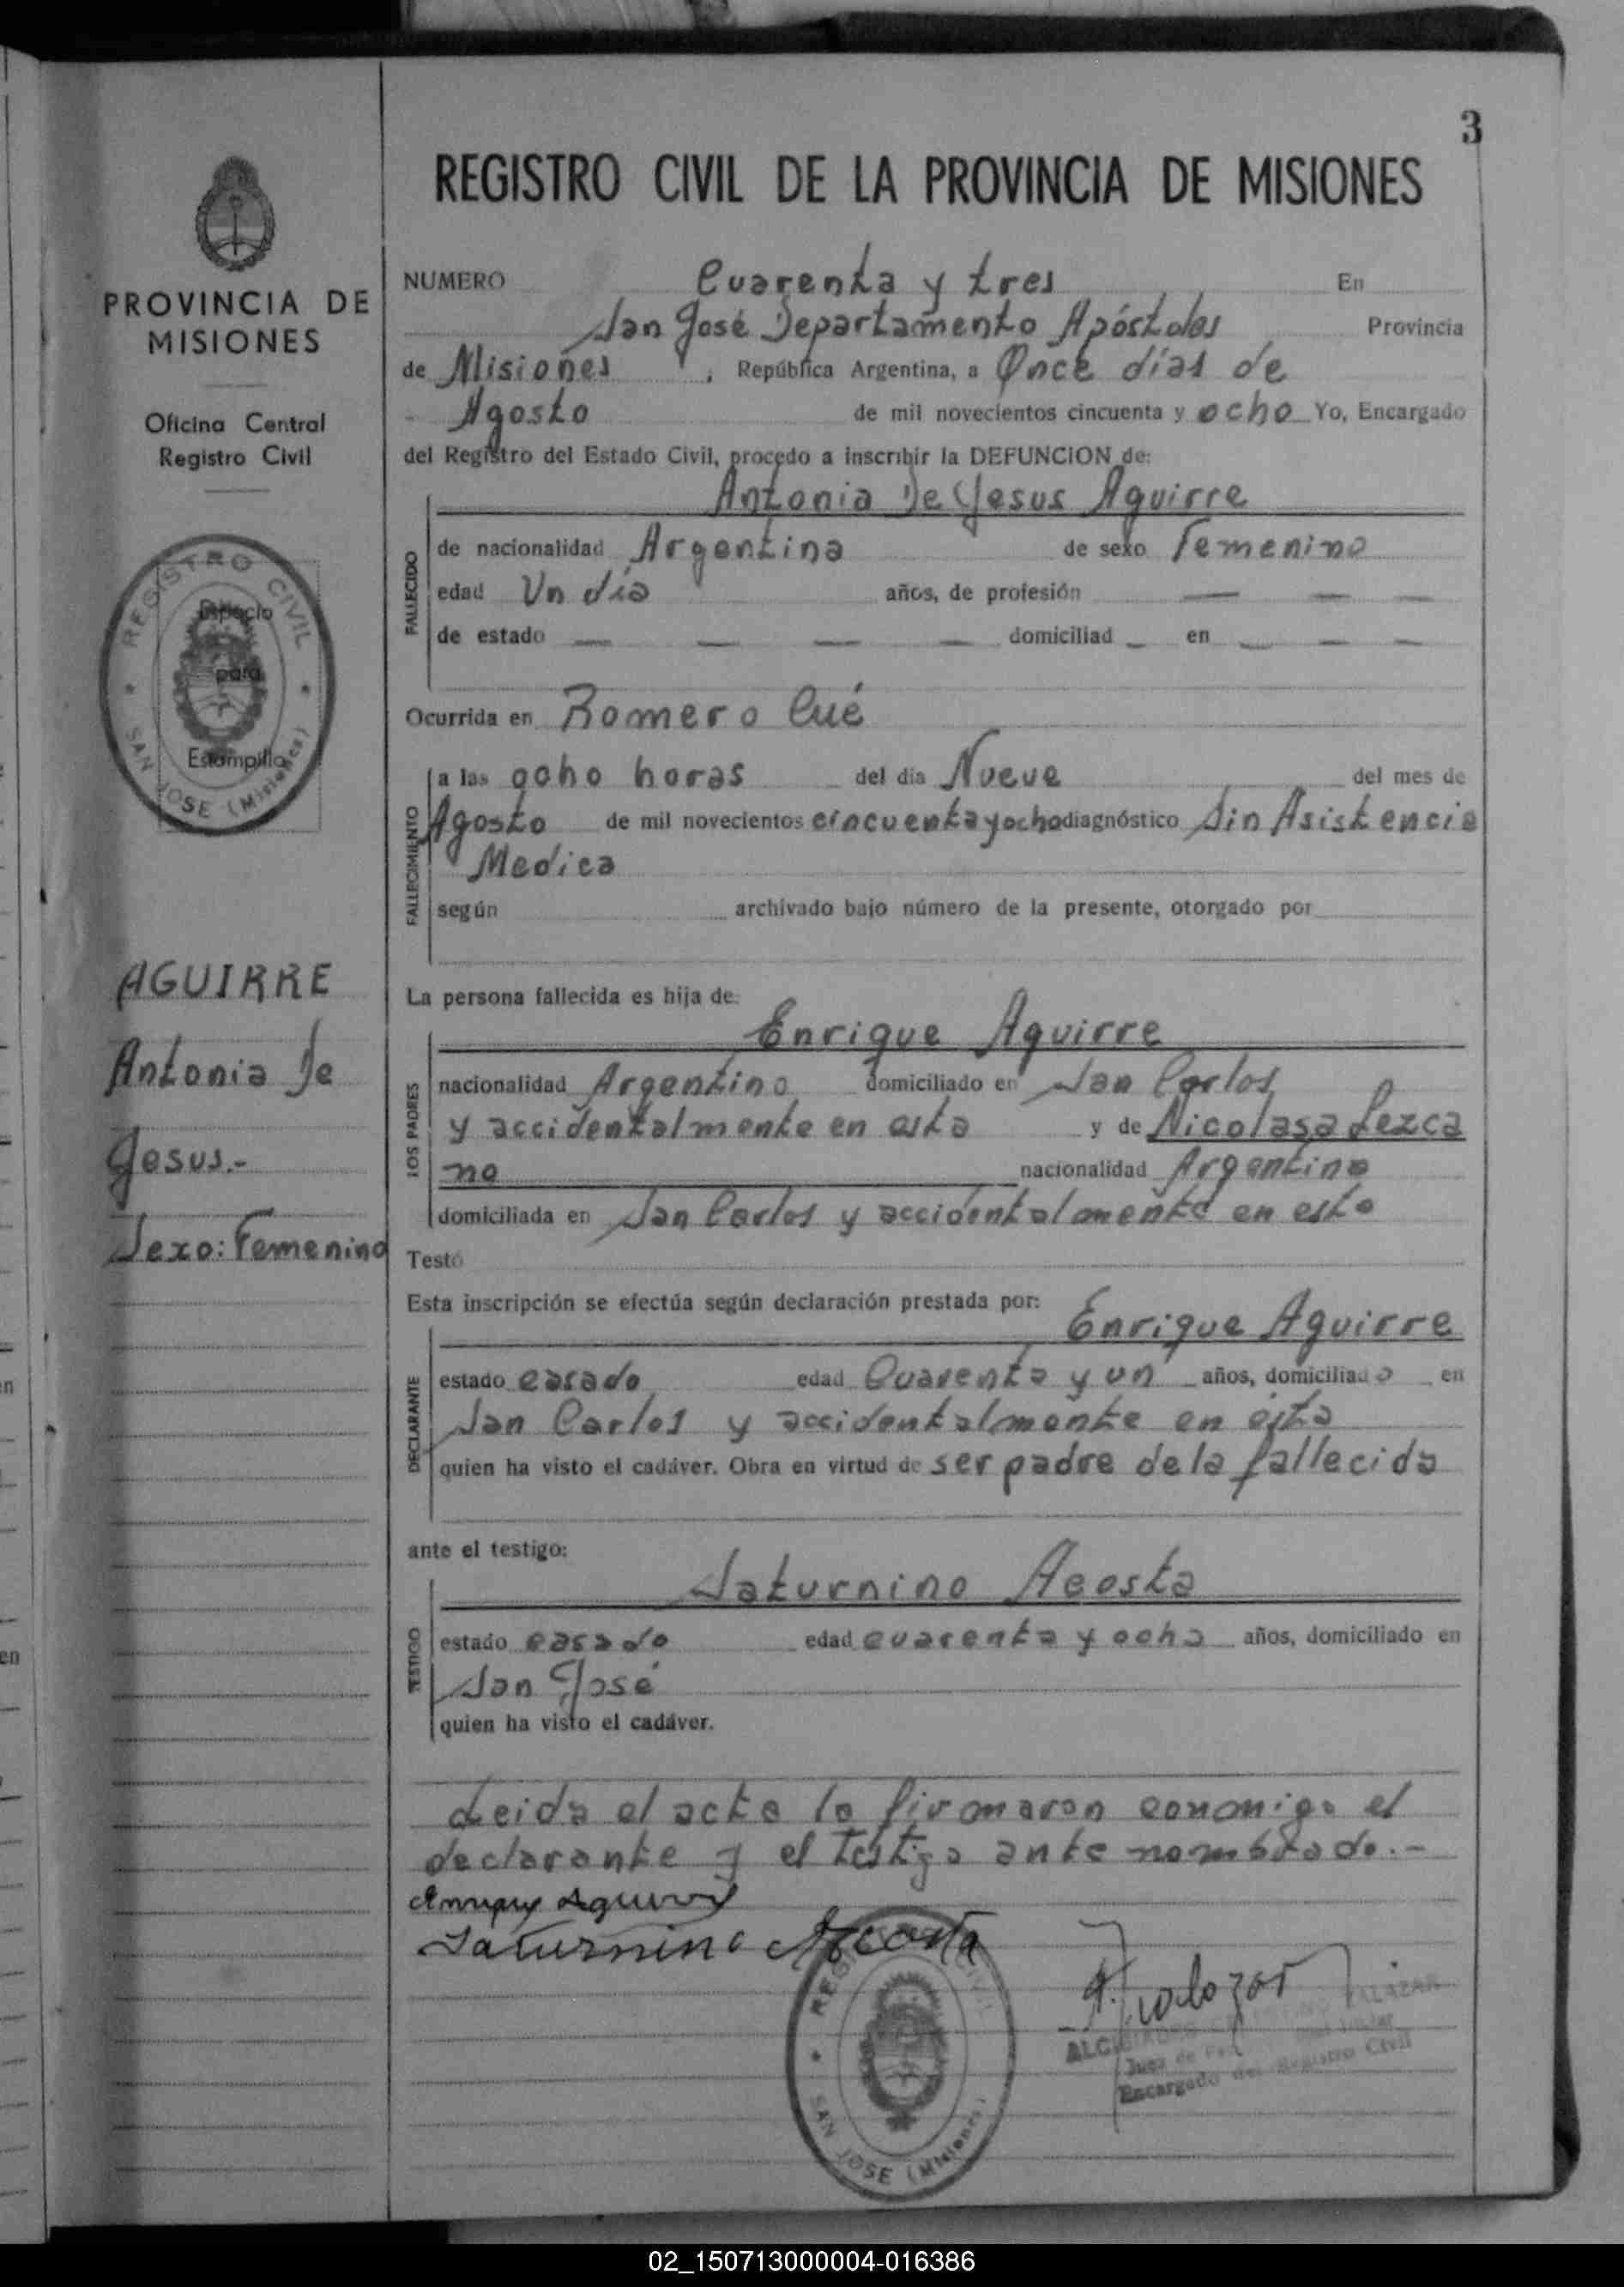 3
REGISTRO CIVIL DE LA PROVINCIA DE MISIONES
PROVINCIA DE
MISIONES
Oficina Central
Registro Civil
REGISTRO CIVIL
Espacio
para
Estampilla
SAN JOSE (Misiones)
AGUIRRE
Antonia De
Jesus.-
Sexo: Femenino
NUMERO Cuarenta y tres En
San José Departamento Apóstoles Provincia
de Misiones, República Argentina, a Once días de
Agosto de mil novecientos cincuenta y ocho Yo, Encargado
del Registro del Estado Civil, procedo a inscribir la DEFUNCION de:
Antonia De Jesus Aguirre
FALLECIDO
de nacionalidad Argentina de sexo Femenino
edad Un día años, de profesión — — —
de estado — — — — domiciliad — en — — —
Ocurrida en Romero Cué
FALLECIMIENTO
a las ocho horas del día Nueve del mes de
Agosto de mil novecientos cincuenta y ocho diagnóstico Sin Asistencia
Medica
según archivado bajo número de la presente, otorgado por
La persona fallecida es hija de:
Enrique Aguirre
LOS PADRES
nacionalidad Argentino domiciliado en San Carlos
y accidentalmente en esta y de Nicolasa Lezca
no nacionalidad Argentina
domiciliada en San Carlos y accidentalmente en esta
Testó
Esta inscripción se efectúa según declaración prestada por:
Enrique Aguirre
DECLARANTE
estado casado edad Cuarenta y un años, domiciliado en
San Carlos y accidentalmente en ésta
quien ha visto el cadáver. Obra en virtud de ser padre de la fallecida
ante el testigo:
Saturnino Acosta
TESTIGO
estado casado edad cuarenta y ocho años, domiciliado en
San José
quien ha visto el cadáver.
Leida el acta la firmaron conmigo el
declarante y el testigo ante nombrado.-
Aguirre
Saturnino Acosta
REGISTRO CIVIL
SAN JOSE (Misiones)
Juez de Paz
Encargado del Registro Civil
02_150713000004-016386